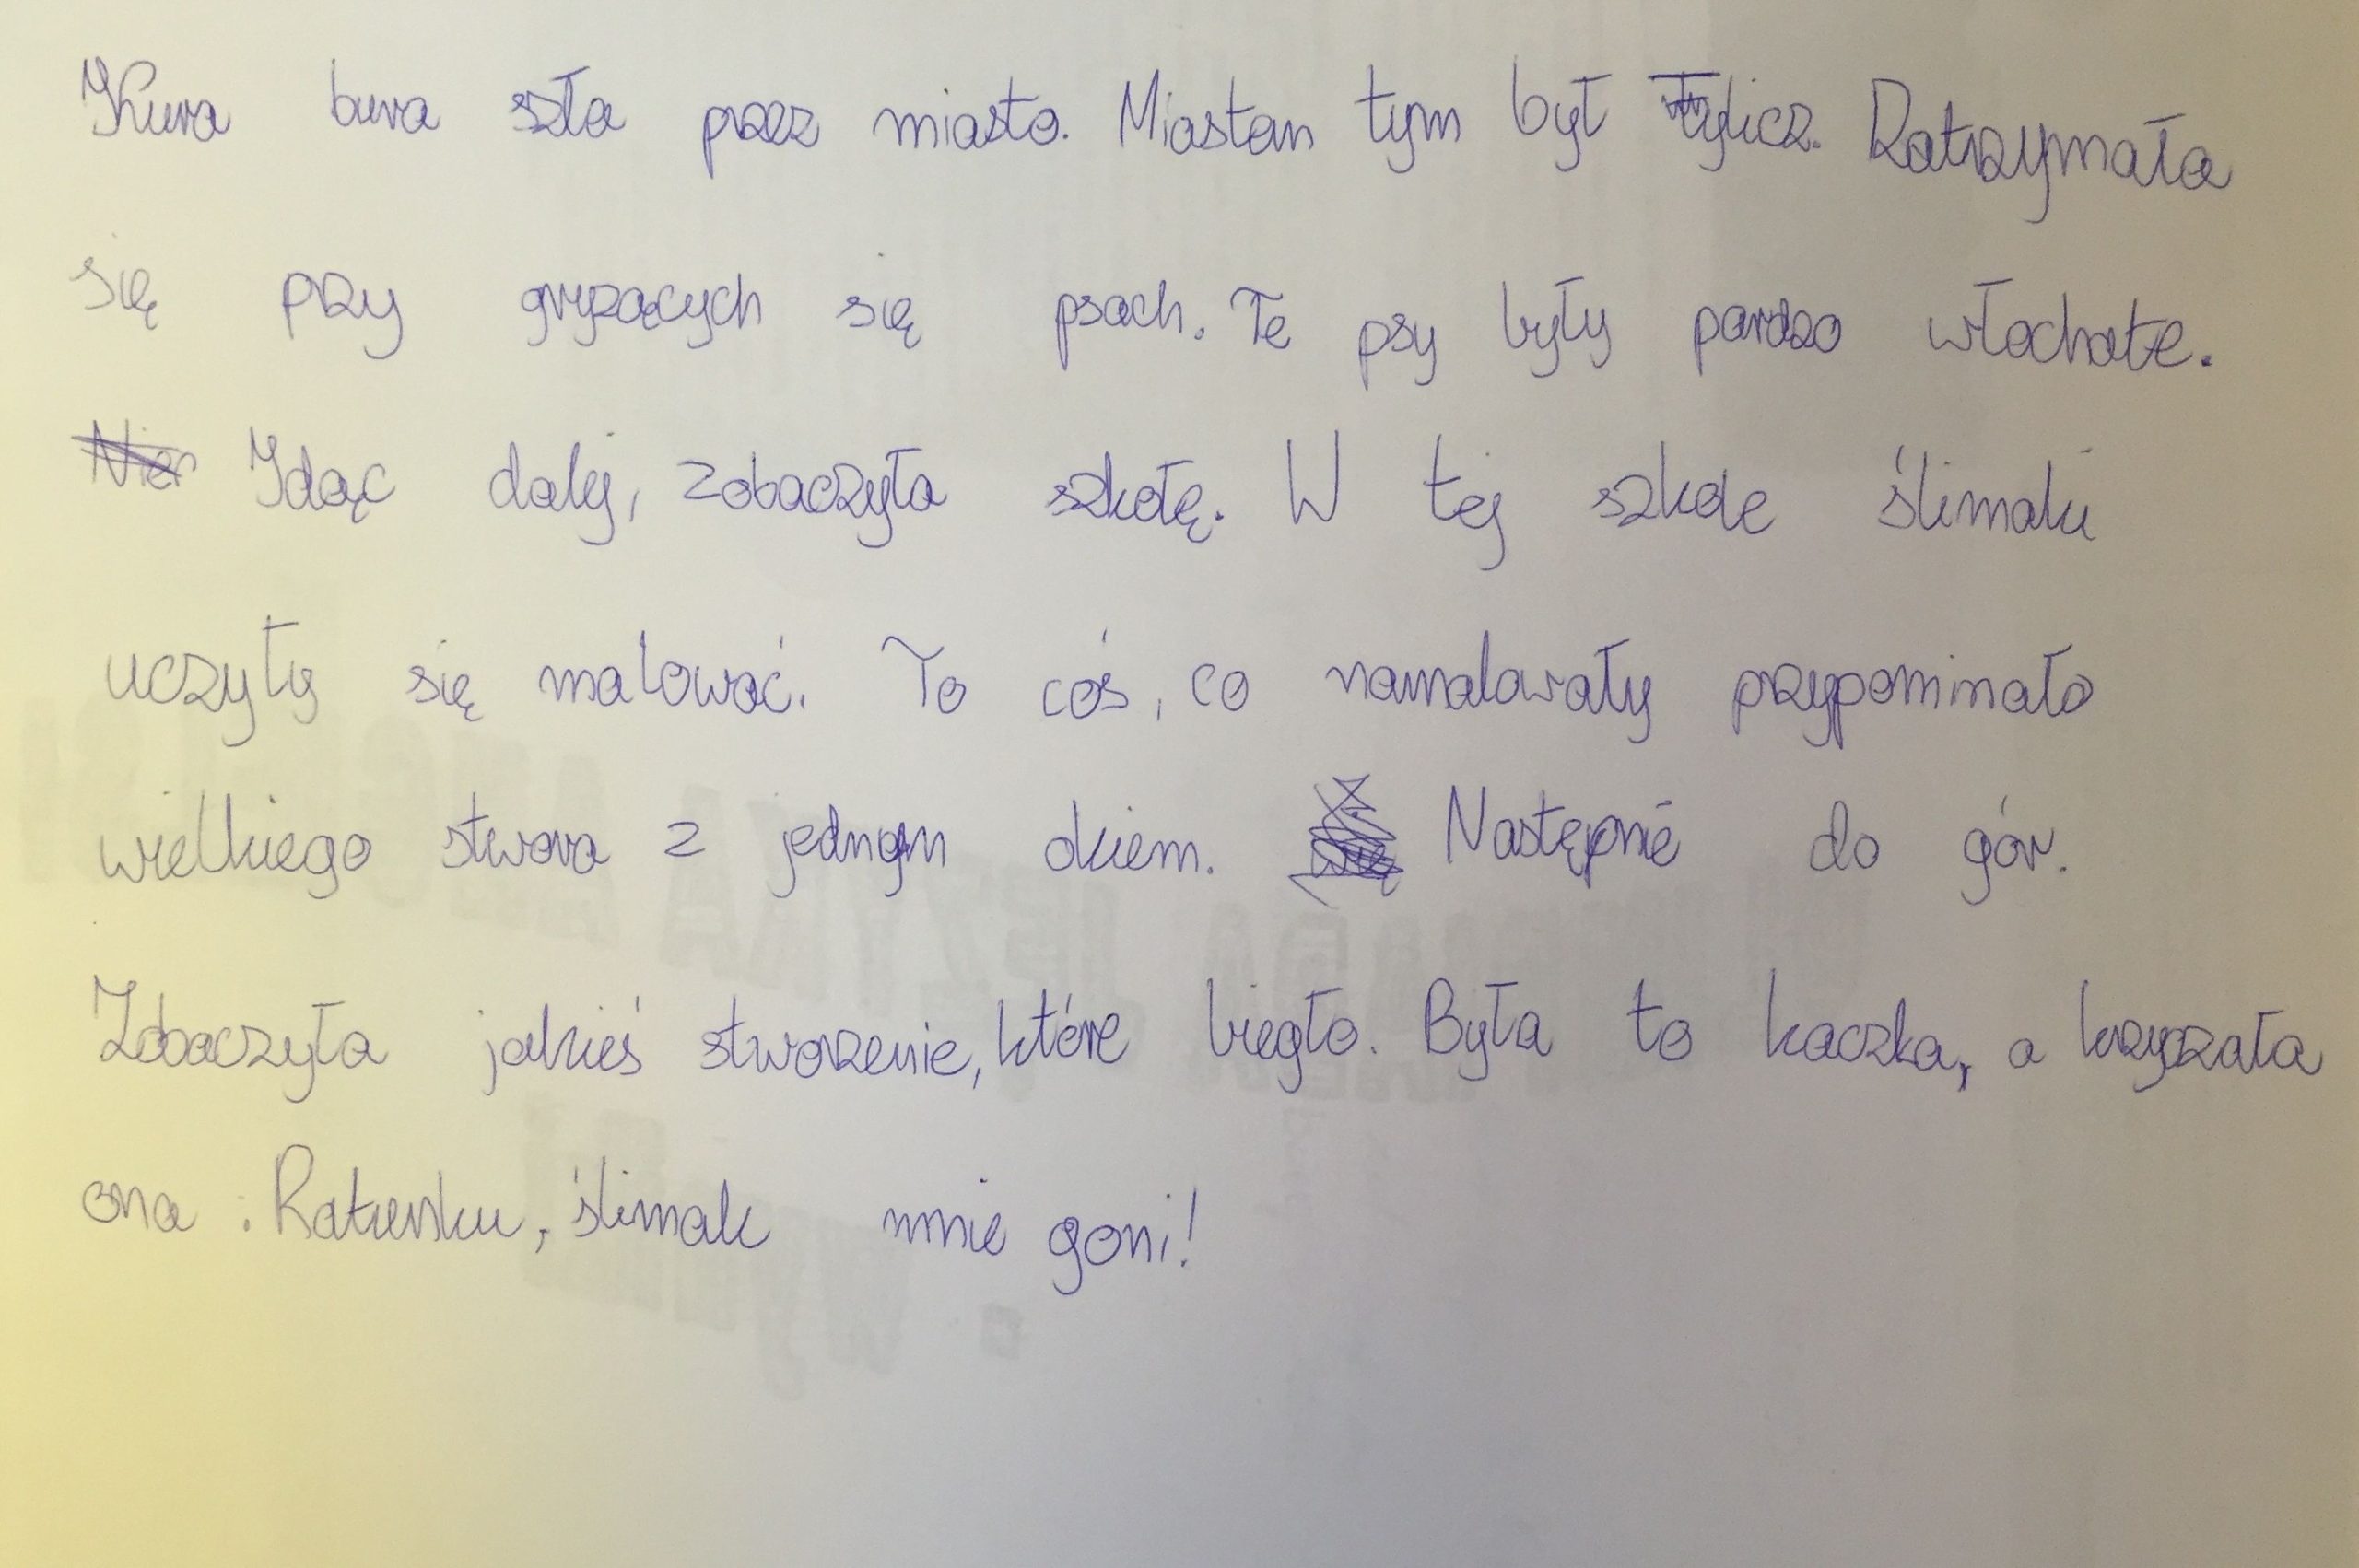 Kura bura szła przez miasto. Miastem tym był Tylicz. Zatrzymała
się przy gryzących się psach. Te psy były pardzo włochate.
Idąc dalej, zobaczyła szkołę. W tej szkole ślimaki
uczyły się malować. To coś, co namalowały przypominało
wielkiego stwora z jednym okiem. Następnie do gór.
Zobaczyła jakieś stworzenie, które biegło. Była to kaczka, a krzyczała
ona: Ratunku, ślimak mnie goni!